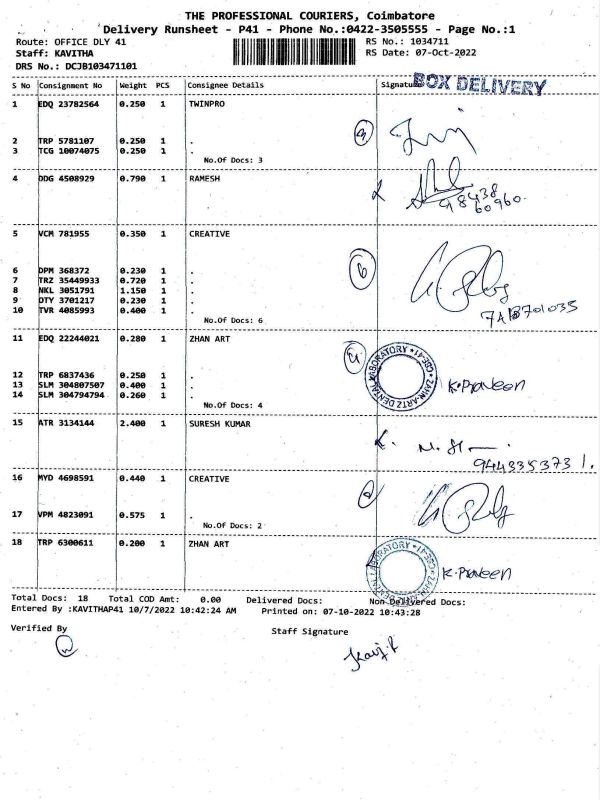 THE PROFESSIONAL COURIERS, Coimbatore
Delivery Runsheet - P41 - Phone No.:0422-3505555 - Page No.:1
Route: OFFICE DLY 41 RS No.: 1034711
Staff: KAVITHA RS Date: 07-Oct-2022
DRS No.: DCJB103471101
S No Consignment No Weight PCS Consignee Details Signature BOX DELIVERY
1 EDQ 23782564 0.250 1 TWINPRO
2 TRP 5781107 0.250 1 .
3 TCG 10074075 0.250 1 .
No.Of Docs: 3
4 DDG 4508929 0.790 1 RAMESH
98438
60960.
5 VCM 781955 0.350 1 CREATIVE
6 DPM 368372 0.230 1 .
7 TRZ 35449933 0.720 1 .
8 NKL 3051791 1.150 1 .
9 DTY 3701217 0.230 1 .
10 TVR 4085993 0.400 1 .
No.Of Docs: 6
11 EDQ 22244021 0.280 1 ZHAN ART
12 TRP 6837436 0.250 1 .
13 SLM 304807507 0.400 1 .
14 SLM 304794794 0.260 1 .
ZAHN-ARTZ DENTAL LABORATORY * CBE-41 *
K. Praveen
No.Of Docs: 4
15 ATR 3134144 2.400 1 SURESH KUMAR
16 MYD 4698591 0.440 1 CREATIVE
17 VPM 4823091 0.575 1 .
No.Of Docs: 2
18 TRP 6300611 0.200 1 ZHAN ART
K. Praveen
Total Docs: 18 Total COD Amt: 0.00 Delivered Docs: Non Delivered Docs:
Entered By :KAVITHAP41 10/7/2022 10:42:24 AM Printed on: 07-10-2022 10:43:28
Verified By Staff Signature